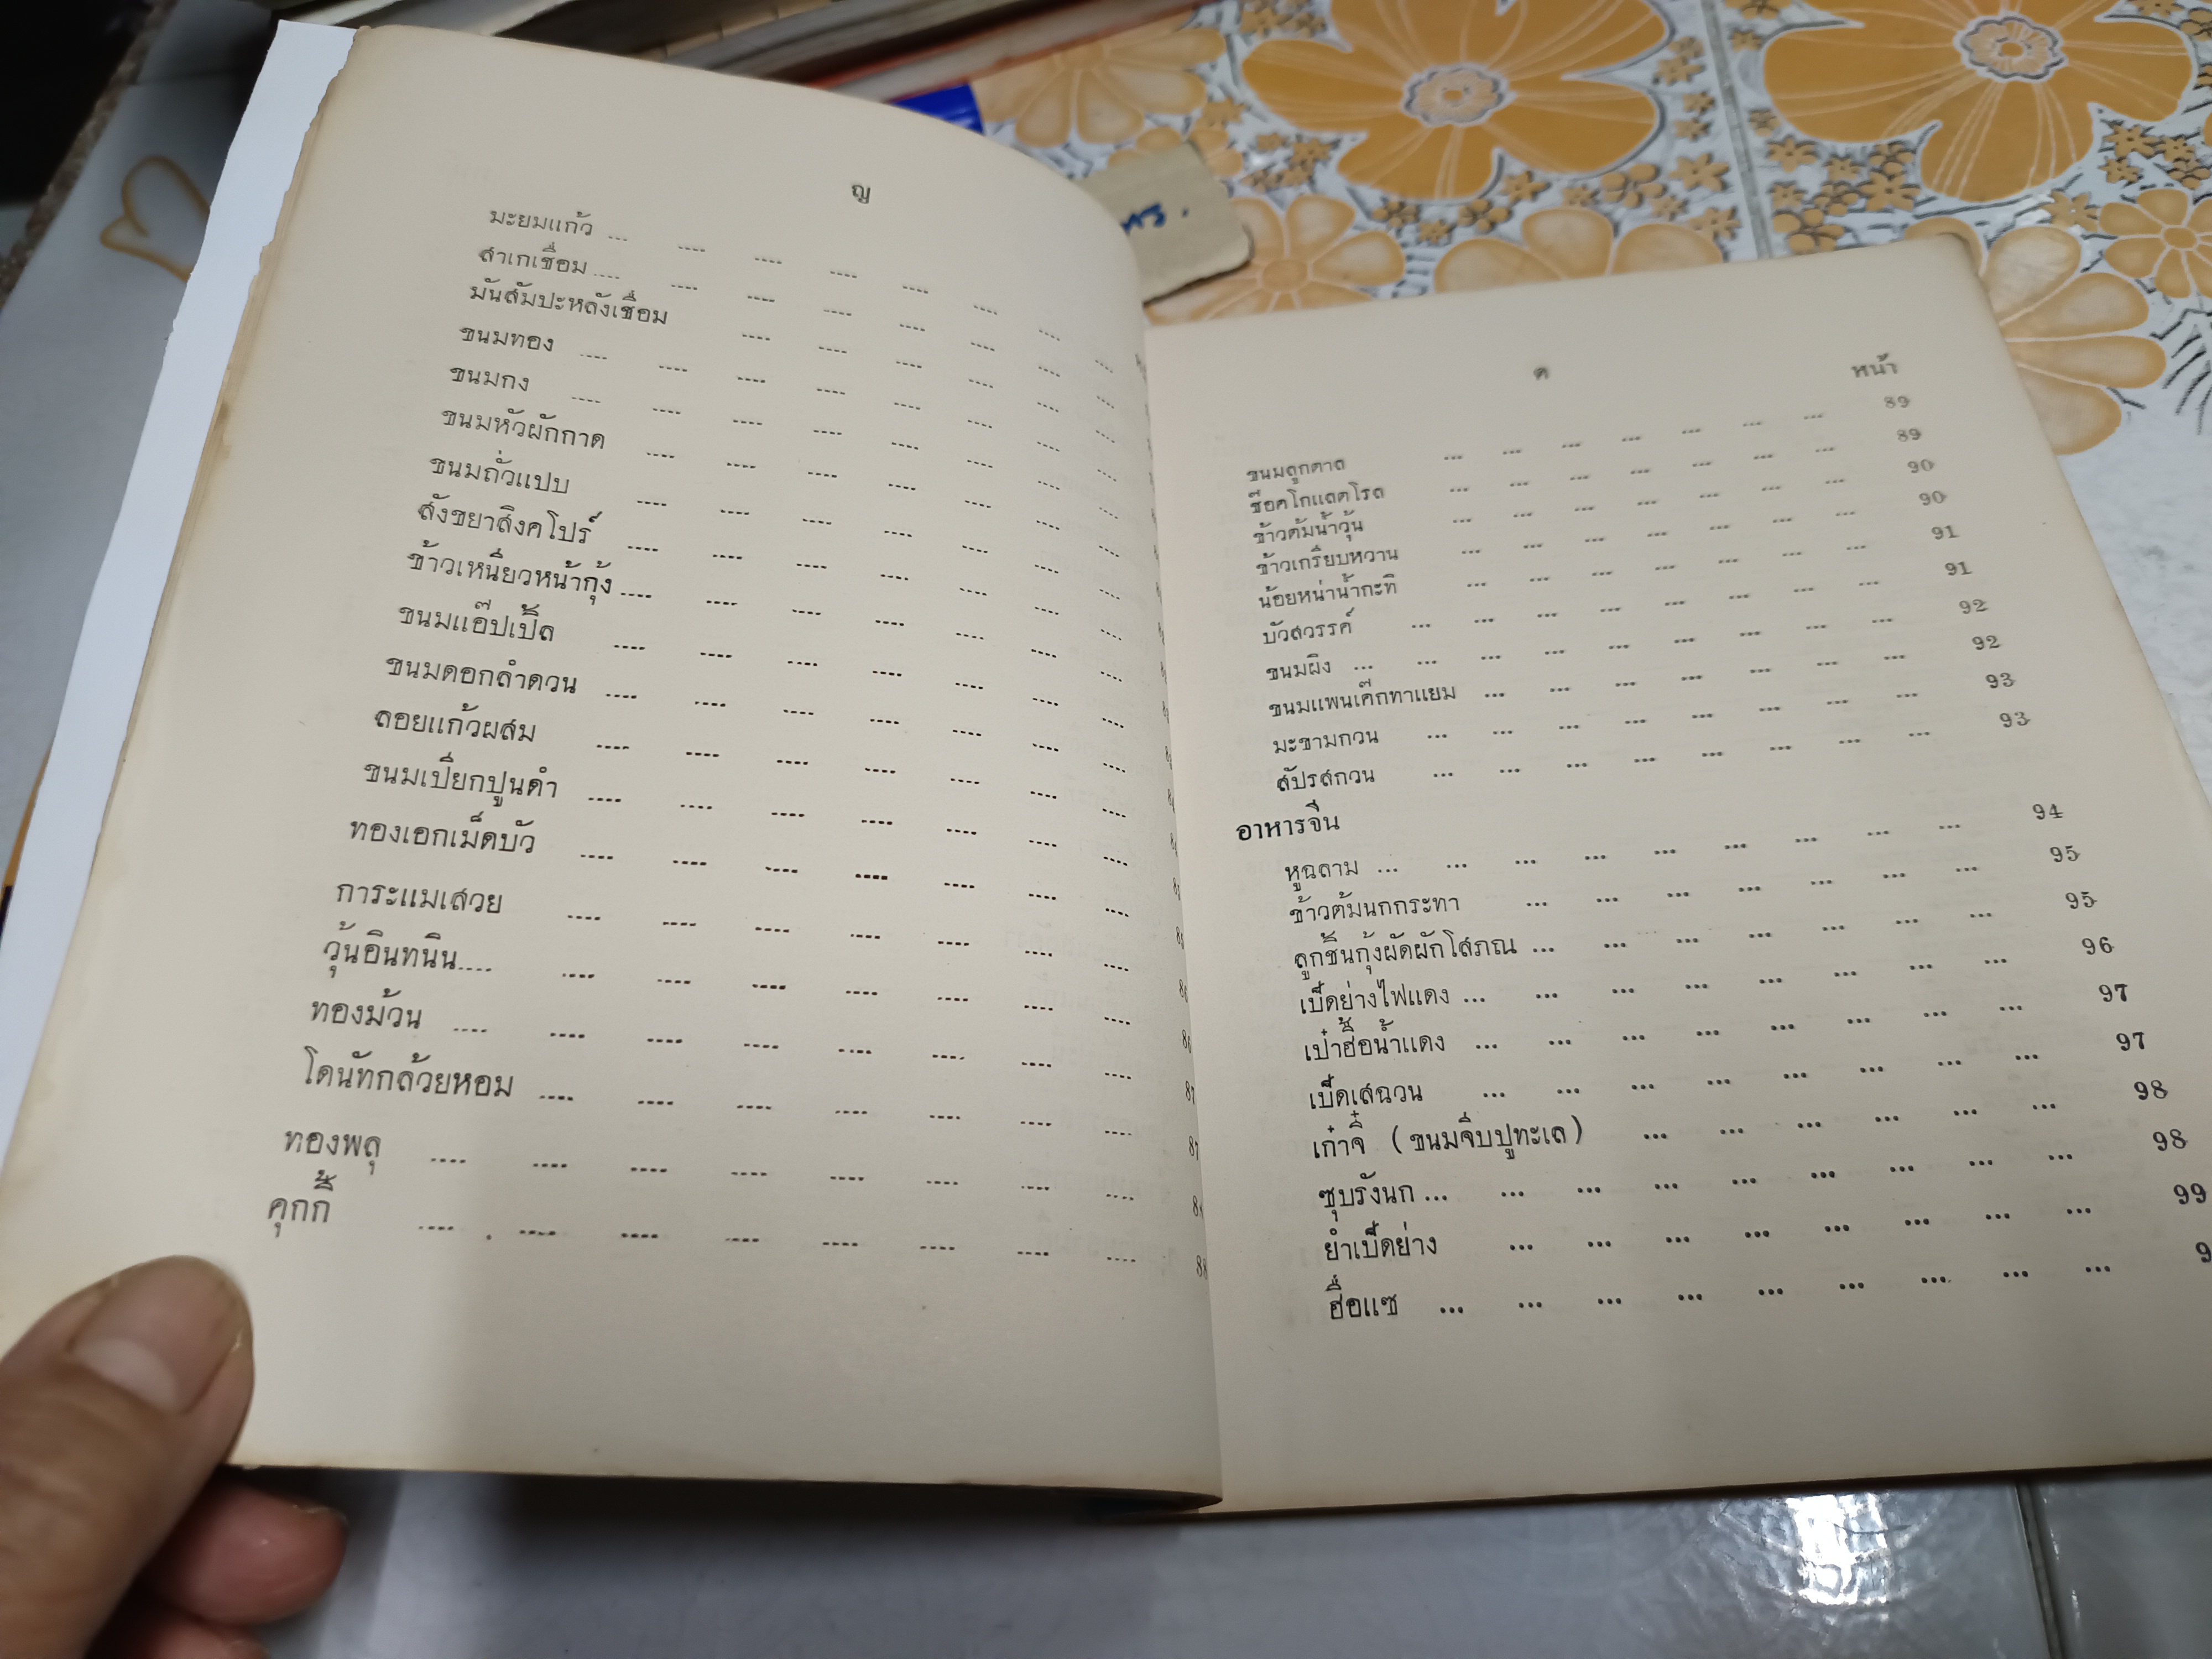 ญ
มะยมแก้ว ... .... .... .... .... .... .... ....
สาเกเชื่อม .... .... .... .... .... .... .... ....
มันสัมปะหลังเชื่อม .... .... .... .... .... ....
ขนมทอง .... .... .... .... .... .... .... ....
ขนมกง .... .... .... .... .... .... .... ....
ขนมหัวผักกาด .... .... .... .... .... .... ....
ขนมถั่วแปบ .... .... .... .... .... .... ....
สังขยาสิงคโปร์ .... .... .... .... .... .... ....
ข้าวเหนียวหน้ากุ้ง .... .... .... .... .... .... ....
ขนมแอ๊ปเปิ้ล .... .... .... .... .... .... ....
ขนมดอกลำดวน .... .... .... .... .... .... ....
ลอยแก้วผสม .... .... .... .... .... .... ....
ขนมเปียกปูนดำ .... .... .... .... .... .... ....
ทองเอกเม็ดบัว .... .... .... .... .... .... ....
การะแมเสวย .... .... .... .... .... .... ....
วุ้นอินทนิน .... .... .... .... .... .... .... ....
ทองม้วน .... .... .... .... .... .... .... ....
โดนัทกล้วยหอม .... .... .... .... .... .... .... 87
ทองพลุ .... .... .... .... .... .... .... ....
คุกกี้ .... .... .... .... .... .... .... .... 88
ค หน้า
ขนมลูกตาล ... ... ... ... ... ... ... 89
ช๊อคโกแลตโรล ... ... ... ... ... ... ... 89
ข้าวต้มน้ำวุ้น ... ... ... ... ... ... ... 90
ข้าวเกรียบหวาน ... ... ... ... ... ... ... 90
น้อยหน่าน้ำกะทิ ... ... ... ... ... ... ... 91
บัวสวรรค์ ... ... ... ... ... ... ... ... 91
ขนมผิง ... ... ... ... ... ... ... ... ... 92
ขนมแพนเค๊กทาแยม ... ... ... ... ... ... ... 92
มะขามกวน ... ... ... ... ... ... ... ... 93
สัปรสกวน ... ... ... ... ... ... ... ... 93
อาหารจีน
หูฉลาม ... ... ... ... ... ... ... ... ... 94
ข้าวต้มนกกระทา ... ... ... ... ... ... ... 95
ลูกชิ้นกุ้งผัดผักโสภณ ... ... ... ... ... ... ... 95
เป็ดย่างไฟแดง ... ... ... ... ... ... ... ... 96
เป๋าฮื้อน้ำแดง ... ... ... ... ... ... ... ... 97
เป็ดเสฉวน ... ... ... ... ... ... ... ... 97
เก๋าจี๋ (ขนมจีบปูทะเล) ... ... ... ... ... ... 98
ซุบรังนก ... ... ... ... ... ... ... ... ... 98
ยำเป็ดย่าง ... ... ... ... ... ... ... ... 99
ฮื่อแซ ... ... ... ... ... ... ... ... ...